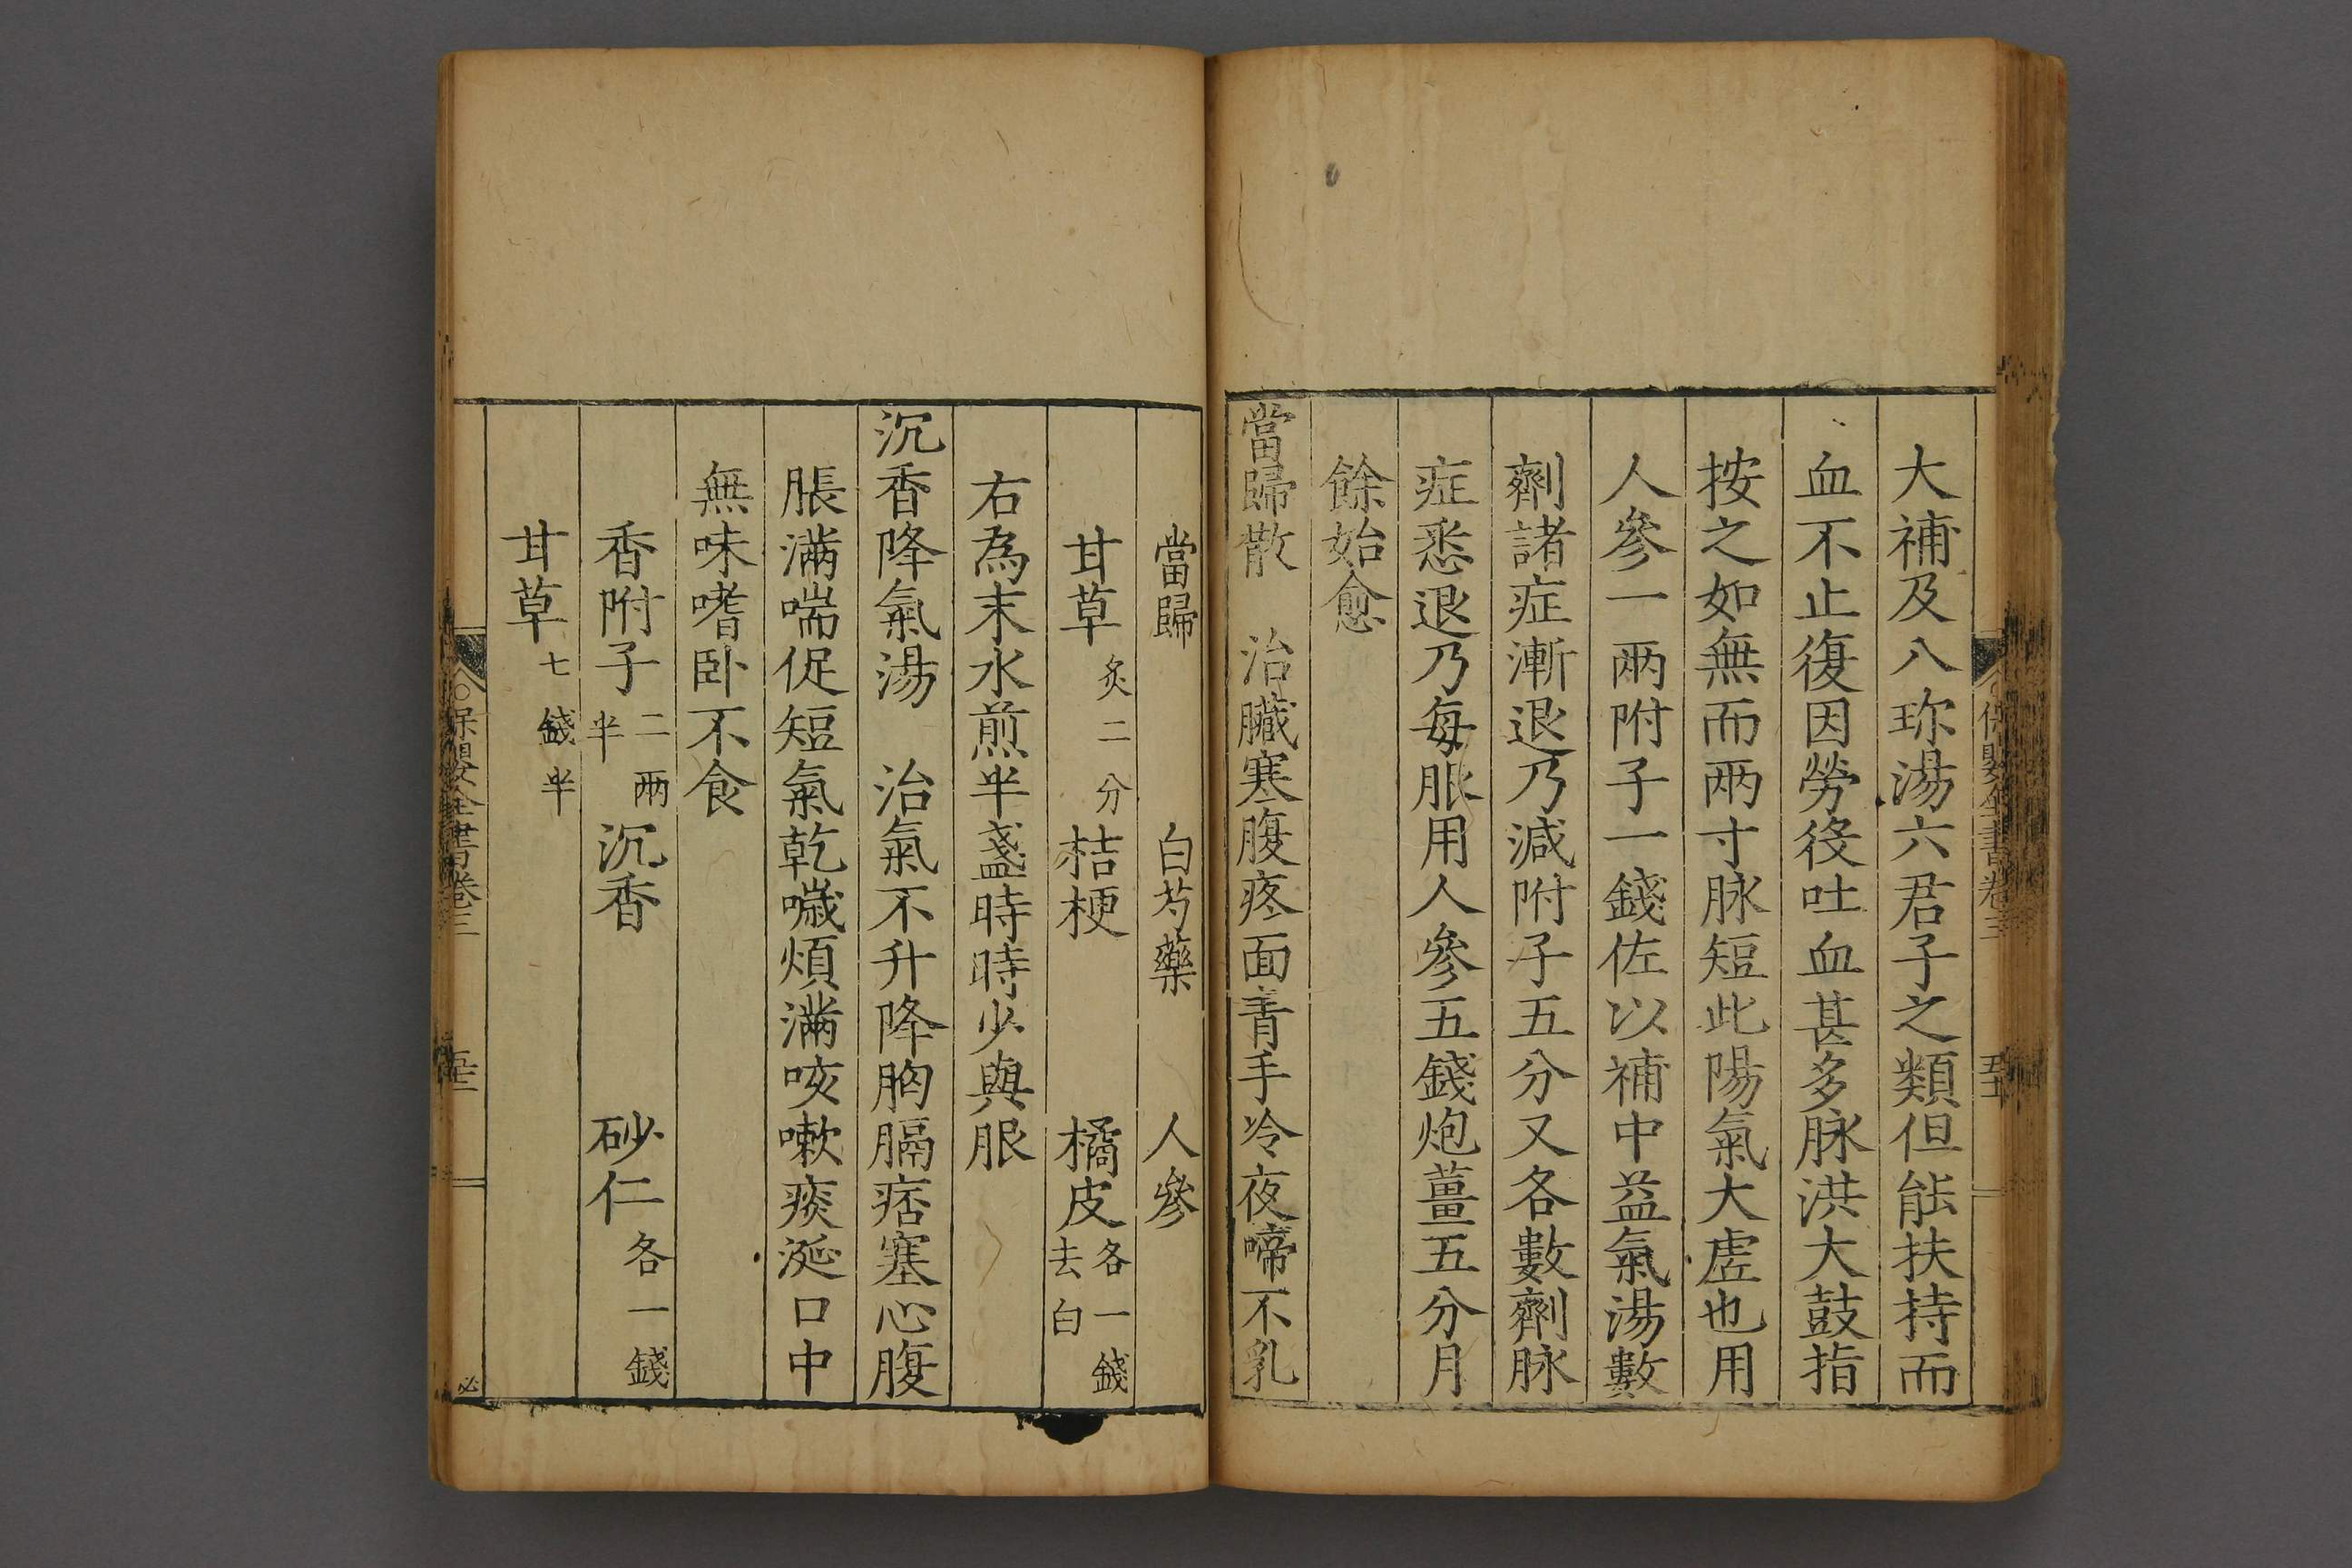 大補及八珎湯六君子之類但能扶持而
血不止復因勞役吐血甚多脉洪大鼓指
按之如無而两寸脉短此陽氣大虚也用
人參一兩附子一錢佐以補中益氣湯數
劑諸症漸退乃減附子五分又各數劑脉
症悉退乃每服用人參五錢炮薑五分月
餘始愈
當歸散　治臟寒腹疼面青手冷夜啼不乳
當歸　白芍藥　人參
甘草炙二分　桔梗　橘皮各一錢去白
右為末水煎半盞時時少與服
沉香降氣湯　治氣不升降胸膈痞塞心腹
脹滿喘促短氣乾噦煩滿咳嗽痰涎口中
無味嗜卧不食
香附子二兩半　沉香　砂仁各一錢
甘草七錢半
保嬰全書卷三